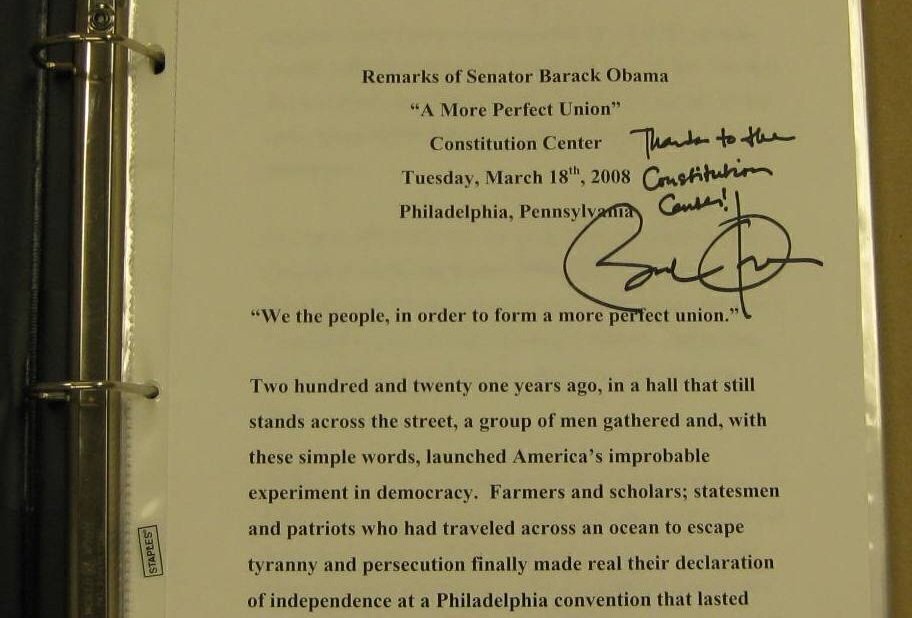 Remarks of Senator Barack Obama
“A More Perfect Union”
Constitution Center
Thanks to the
Tuesday, March 18th, 2008
Constitution
Center!
Philadelphia, Pennsylvania
“We the people, in order to form a more perfect union.”
Two hundred and twenty one years ago, in a hall that still
stands across the street, a group of men gathered and, with
these simple words, launched America’s improbable
experiment in democracy.  Farmers and scholars; statesmen
and patriots who had traveled across an ocean to escape
tyranny and persecution finally made real their declaration
of independence at a Philadelphia convention that lasted
STAPLES